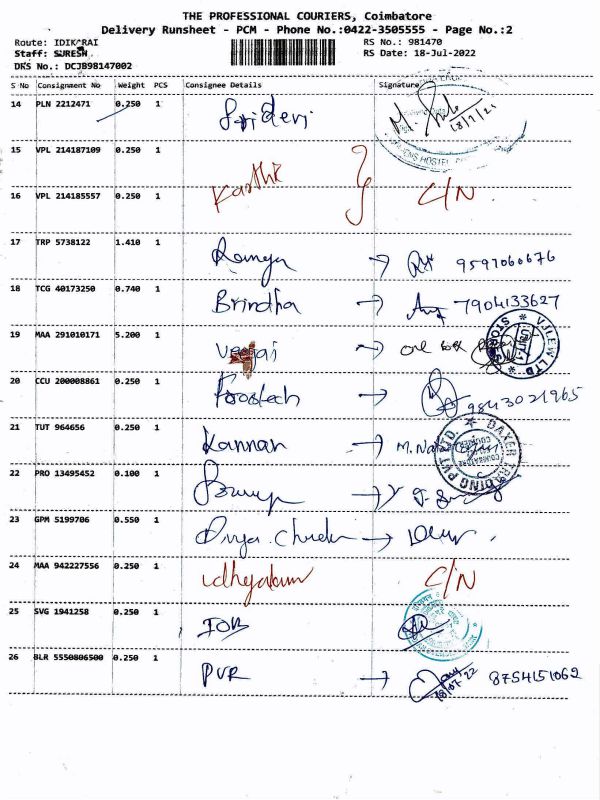 THE PROFESSIONAL COURIERS, Coimbatore
Delivery Runsheet - PCM - Phone No.:0422-3505555 - Page No.:2
Route: IDIK RAI RS No.: 981470
Staff: SURESH RS Date: 18-Jul-2022
DRS No.: DCJB98147002
S No Consignment No Weight PCS Consignee Details Signature
14 PLN 2212471 0.250 1 Sridevi
15 VPL 214187109 0.250 1
Karthik C/N
16 VPL 214185557 0.250 1
17 TRP 5738122 1.410 1 Ramya 9597060676
18 TCG 40173250 0.740 1 Brindha 7904133627
19 MAA 291010171 5.200 1 one box
20 CCU 200008861 0.250 1 9843021965
21 TUT 964656 0.250 1 Kannan
22 PRO 13495452 0.100 1
23 GPM 5199706 0.550 1 Divya
24 MAA 942227556 0.250 1 C/N
25 SVG 1941258 0.250 1 IOB
26 BLR 5550806500 0.250 1 PVR 18/07/22 8754151062